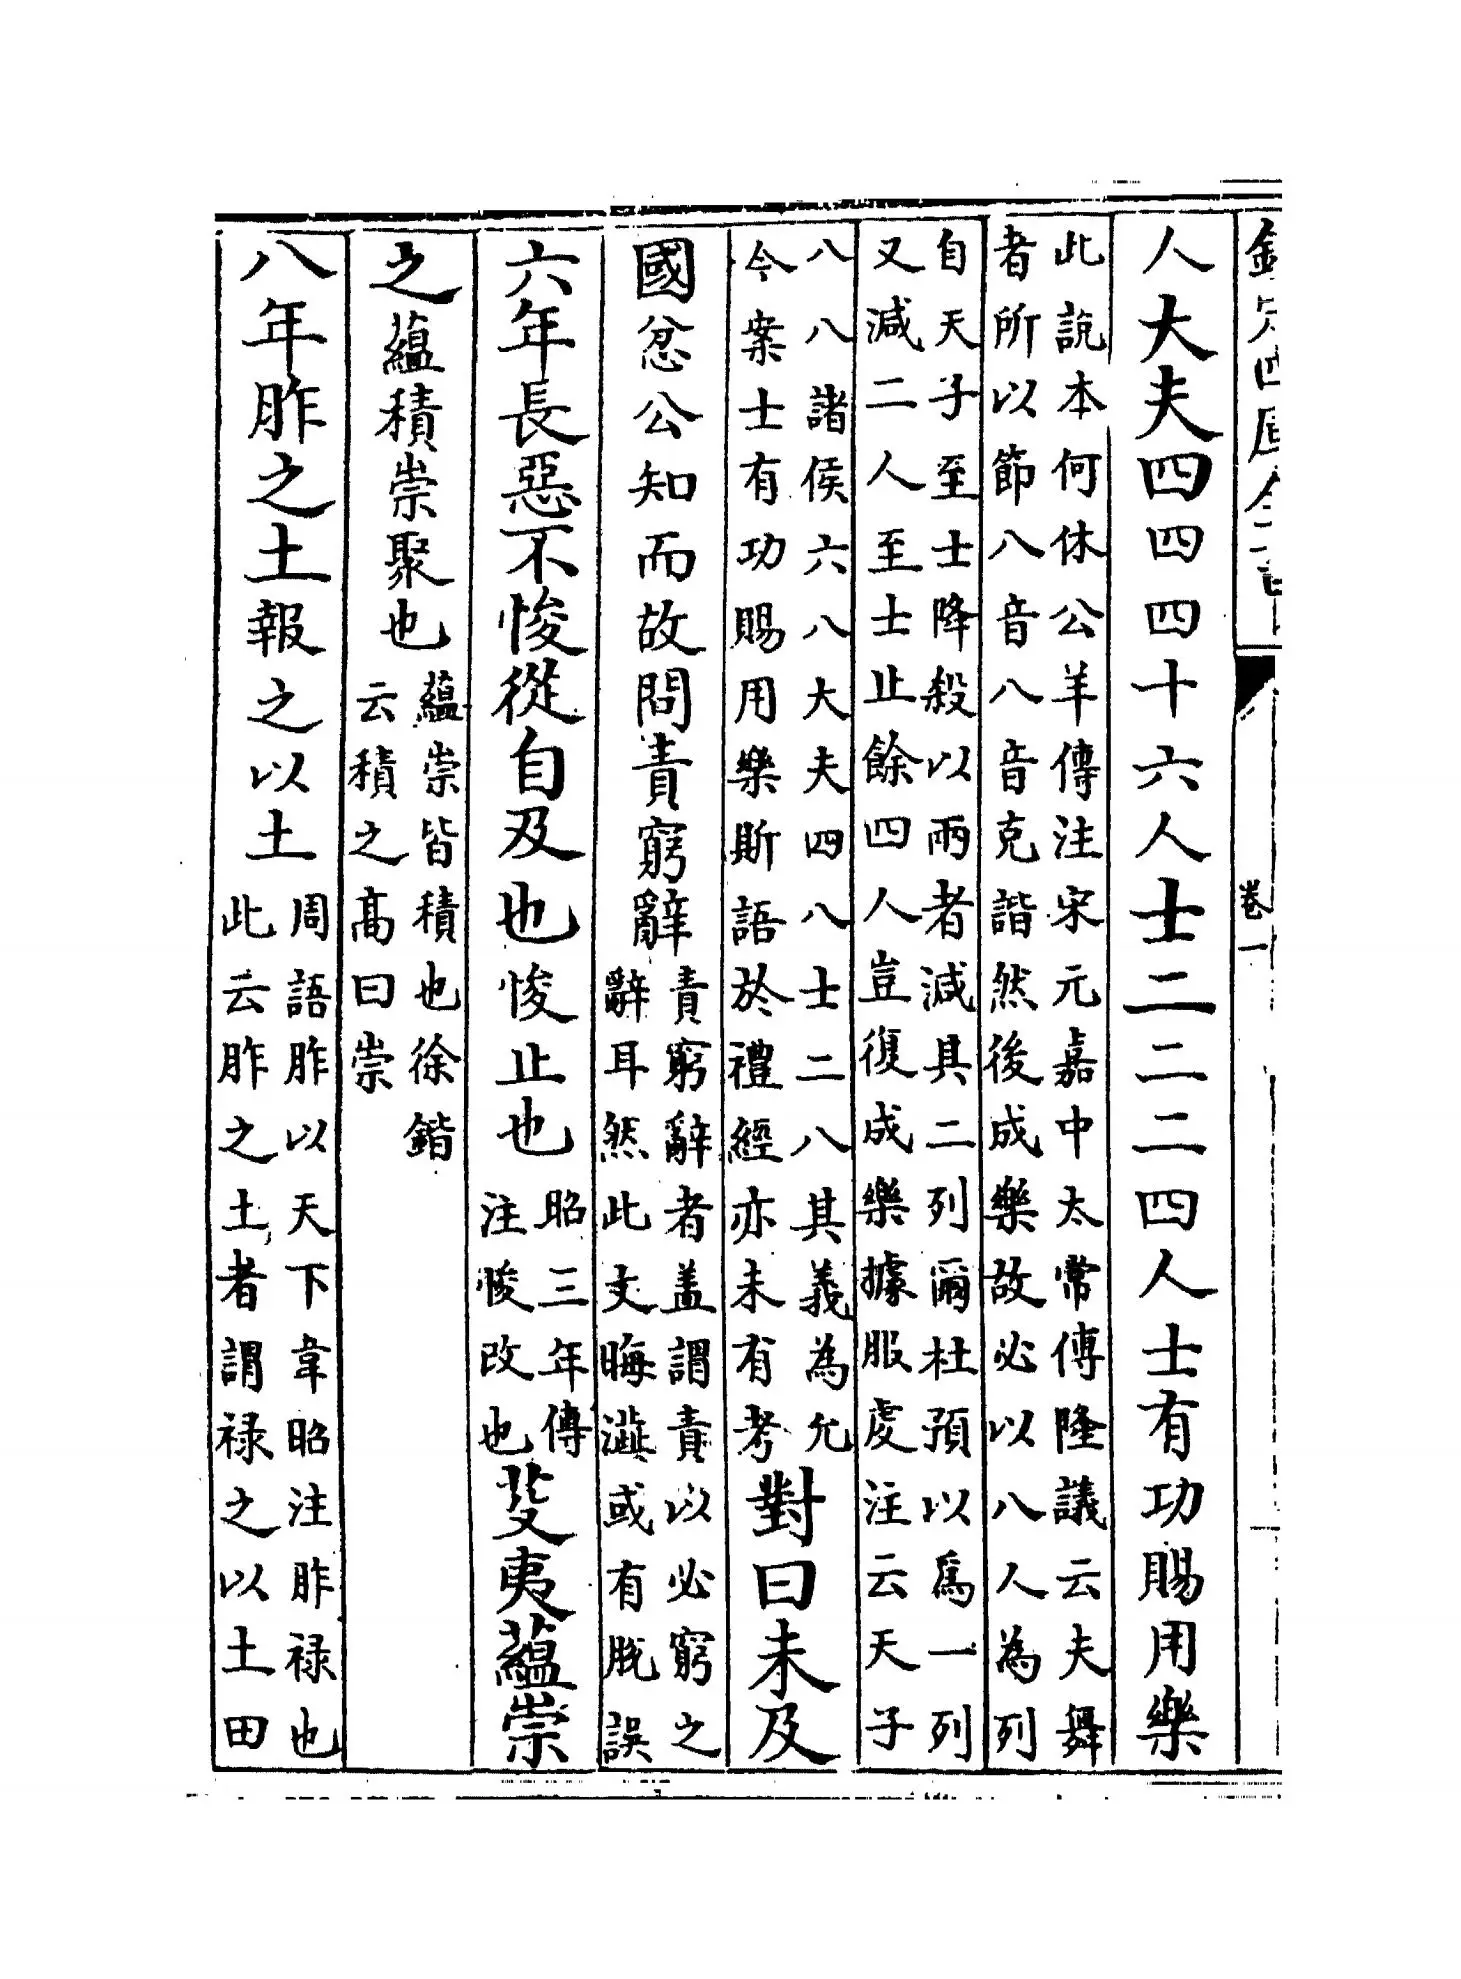 欽定四庫全書
卷一
人大夫四四四十六人士二二二四人士有功賜用樂
此說本何休公羊傳注宋元嘉中太常傅隆議云夫舞
者所以節八音八音克諧然後成樂故必以八人為列
自天子至士降殺以兩兩者減其二列爾杜預以爲一列
又減二人至士止餘四人豈復成樂據服虔注云天子
八八諸侯六八大夫四八士二八其義為允
今案士有功賜用樂斯語於禮經亦未有考
對曰未及
國忿公知而故問責窮辭
責窮辭者盖謂責以必窮之
辭耳然此文晦澁或有脫誤
六年長惡不悛從自及也悛止也
昭三年傳
注悛改也
芟夷蘊崇
之蘊積崇聚也
蘊崇皆積也徐鍇
云積之高曰崇
八年胙之土報之以土
周語胙以天下韋昭注胙祿也
此云胙之土者謂祿之以土田